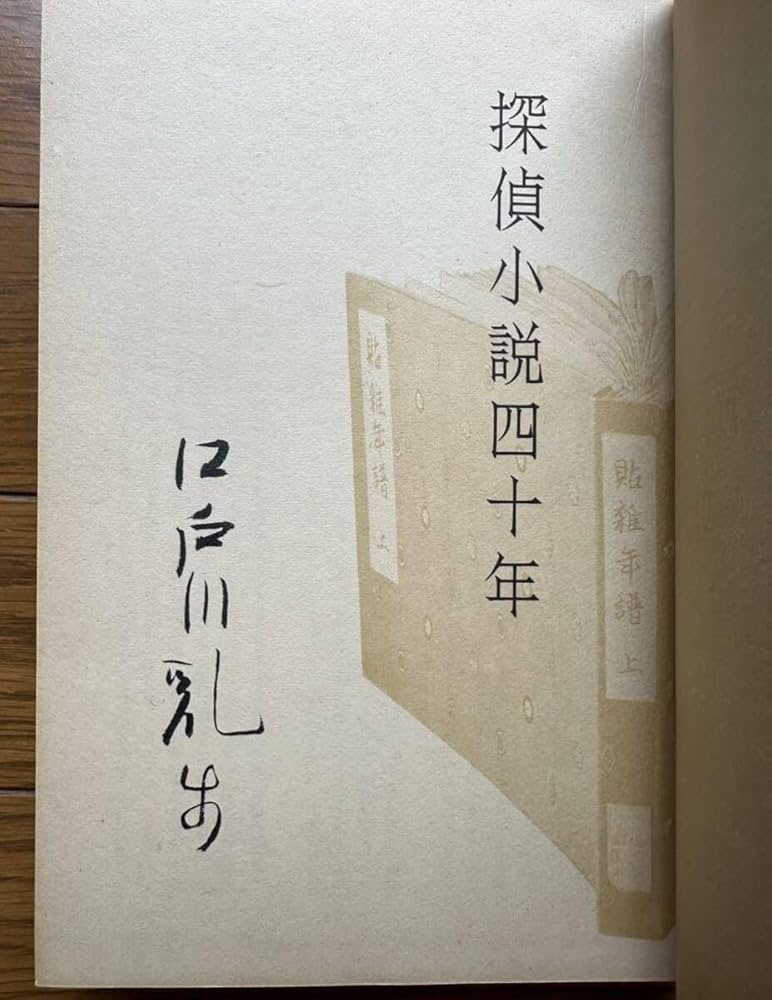 探偵小説四十年
貼雑年譜 上
貼雑年譜 上
江戸川乱歩